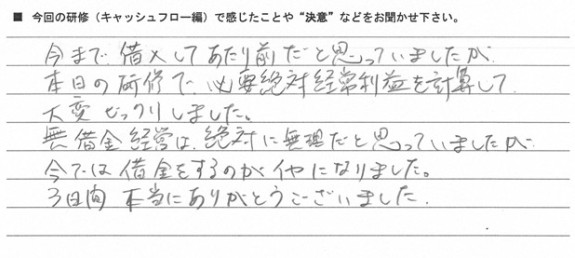 ■ 今回の研修（キャッシュフロー編）で感じたことや“決意”などをお聞かせ下さい。
今まで借入してあたり前だと思っていましたが
本日の研修で、必要絶対経常利益を計算して
大変びっくりしました。
無借金経営は、絶対に無理だと思っていましたが
今では借金をするのがイヤになりました。
3日間 本当にありがとうございました.